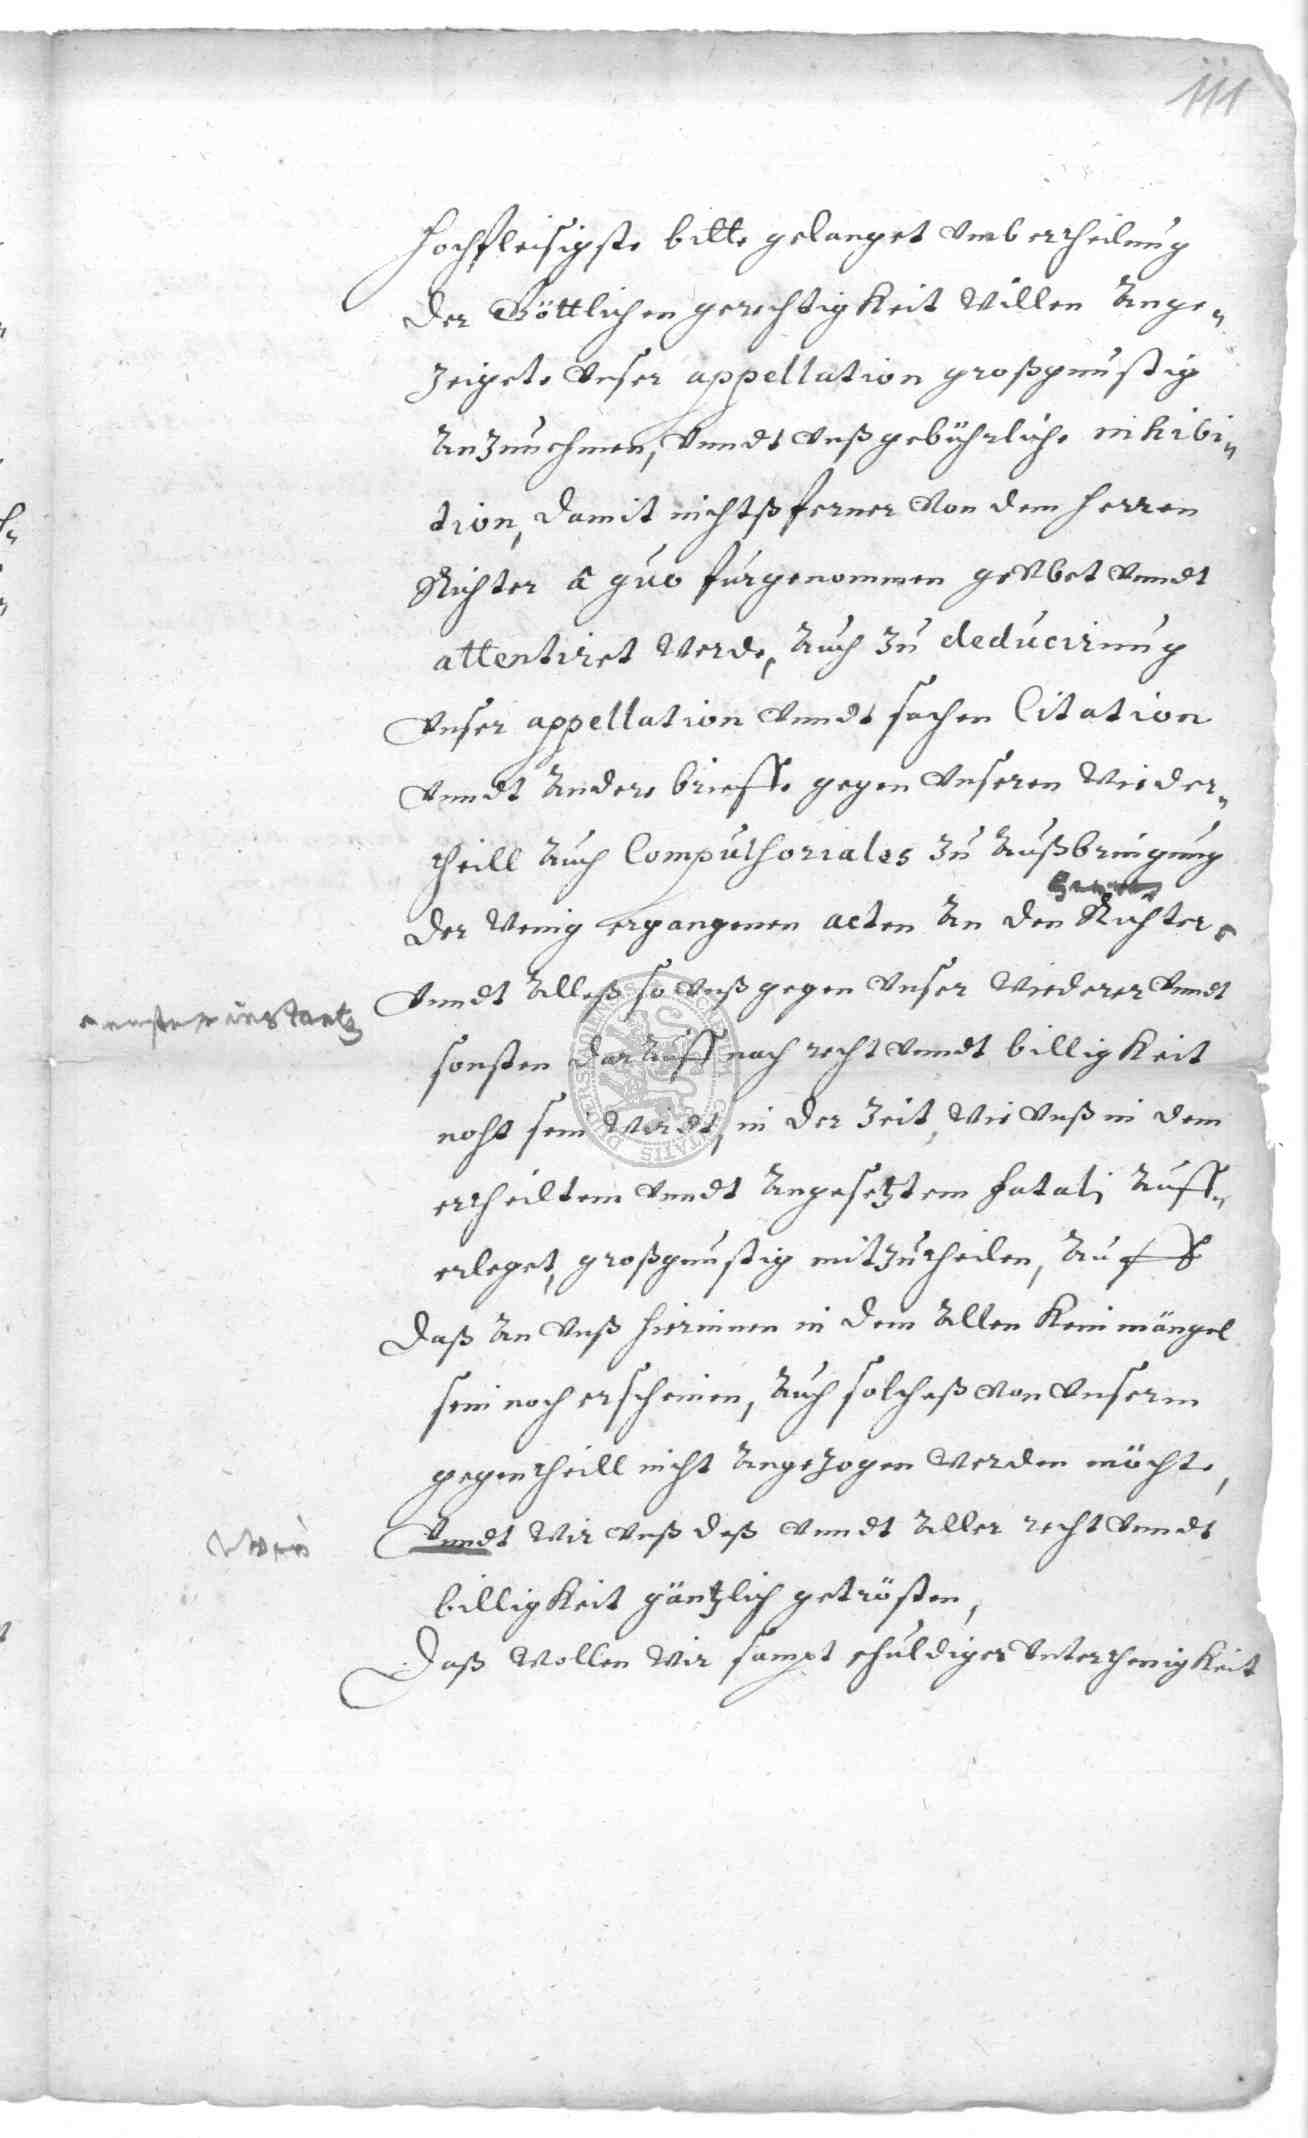 111
hochfleisigste bitte gelanget Umb ertheilung
der Göttlichen gerechtigkeit Willen Ange„
zeigete Unser appellation großgunstig
Anzunehmen, Vnndt Unß gebührliche inhibi„
tion, damit nichtß ferner Von dem herren
Richter â quo fürgenommen geVbet Vnndt
attentiret Werde, Auch Zu deducirung
Unser appellation Vnndt sachen Citation
Vnndt Andere brieffe gegen Unseren Wieder„
theill Auch Compulsoriales Zu Außbringung
der Wenig ergangenen acten An den Richter
Vnndt Alleß so Unß gegen Unser Wiederer Vnndt
ersten instantz
sonsten darAuff nach recht Vnndt billigkeit
noht sein Wirdt, in der Zeit, Wie Unß in dem
ertheiltem Vnndt Angesetztem fatali Auff„
erleget, großgunstig mitzutheilen, Auff
Daß An Unß hierinnen in dem Allen kein mängel
sein noch erscheinen, Auch solcheß Von Unserm
gegentheill nicht Angezogen Werden möchte,
Vnndt Wir Unß deß Vnndt Aller recht Vnndt
billigkeit gäntzlich getrösten,
Daß Wollen Wir sampt schuldiger Unterthenigkeit